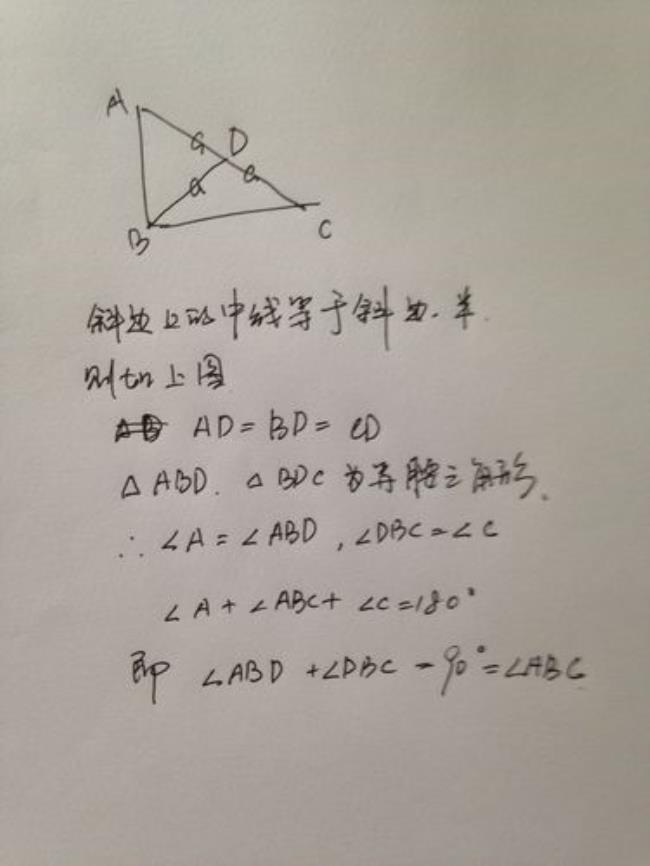 A
a
D
a
a
B
C
斜边上的中线等于斜边一半.
则如上图
AD = BD = CD
△ABD. △BDC 为等腰三角形.
∴ ∠A = ∠ABD , ∠DBC = ∠C
∠A + ∠ABC + ∠C = 180°
即 ∠ABD + ∠DBC = 90° = ∠ABC